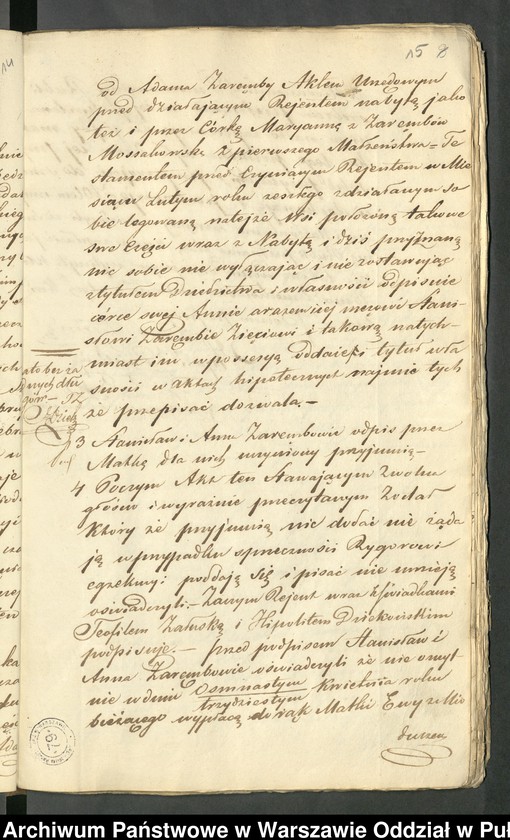 15 8
od Adama Zaremby Aktem Urzędowym
przed działającym Rejentem nabytą jako
też i przez Córkę Maryannę z Zarembów
Mossakowską z pierwszego Małżeństwa Te
stamentem przed czyniącym Rejentem w Mie
siącu Lutym roku zeszłego zdziałanym so
bie legowaną na tejże Wsi położoną takowe
swe Części wraz z Nabytą i dziś przyznaną
nic sobie nie wyłączając i nie zostawując
z tytułem Dziedzictwa i własności odpisuie
córce swej Annie a razem iéj mężowi Stani-
sławowi Zarembie Zięciowi i takową natych-
miast im w possessyą oddaie i tytuł wła
sności w aktach hipotecznych na imie tych
że przepisać dozwala.-
3 Stanisław i Anna Zarembowie odpis przez
Matkę dla nich uczyniony przyjmują -
4 Poczym Akt ten Stawającym z wolna
głośno i wyraźnie przeczytanym został
który że przyjmują nic dodać nie żąda
ją w przypadku sprzeczności Rygorowi
egzekucyi poddają się i pisać nie umieją
oświadczyli.- Zaczym Rejent wraz z Świadkami
Teofilem Załuską i Hipolitem
podpisuje.- przed podpisem Stanisław i
Anna Zarembowie oświadczyli że nie omyl
nie w dniu Osmnastym
trzydziestym Kwietnia roku
bieżącego wypłacą do rąk Matki
Archiwum Państwowe w Warszawie Oddział w Puł